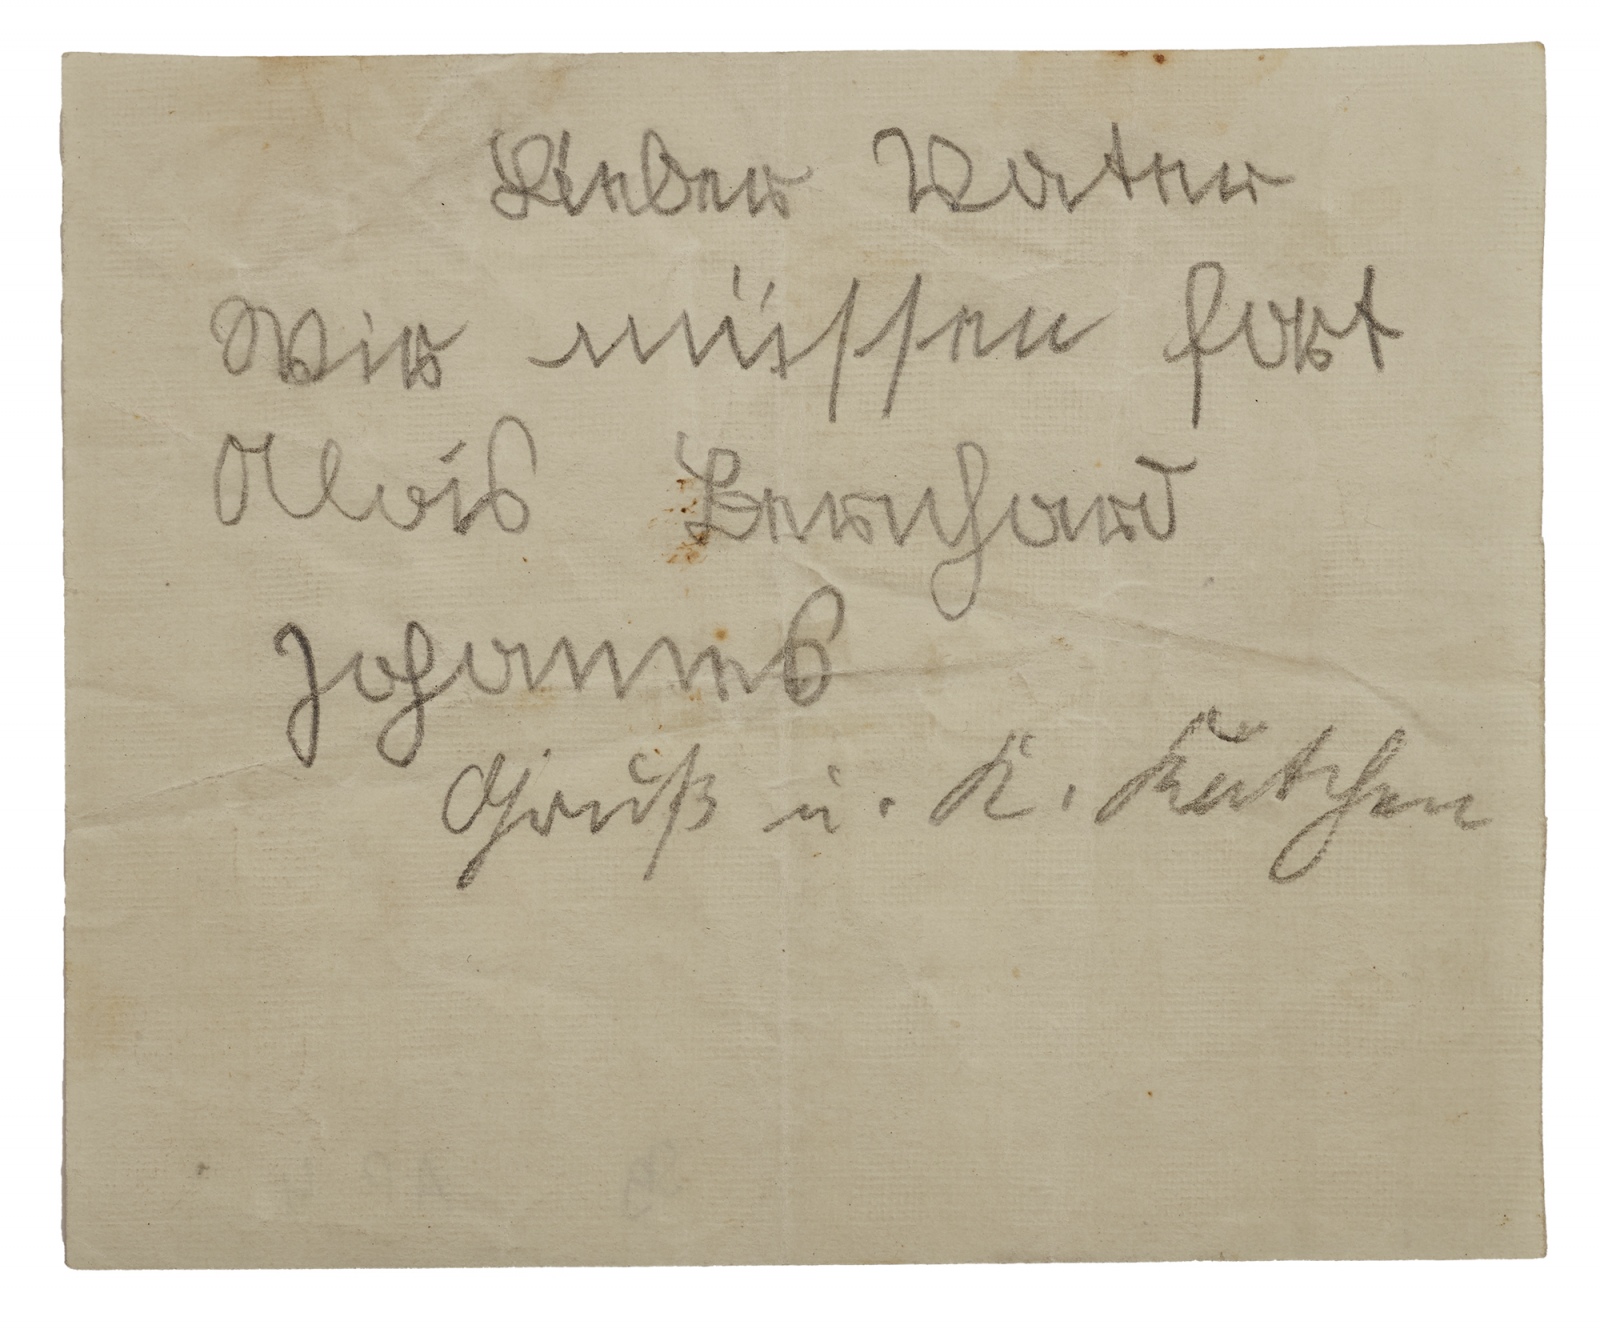 Lieber Vater
Wir müssen fort
Alois Bernhard
Johannes
Gruß u. K. Kätchen